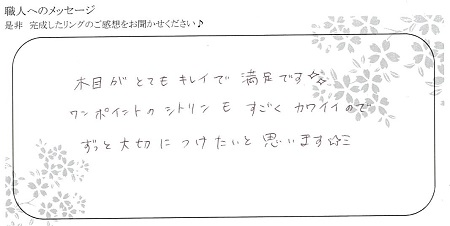 職人へのメッセージ
是非 完成したリングのご感想をお聞かせください♪
木目が とても キレイで 満足です☆
ワンポイントの シトリン も すごく カワイイので
ずっと 大切に つけたいと 思います☆ミ